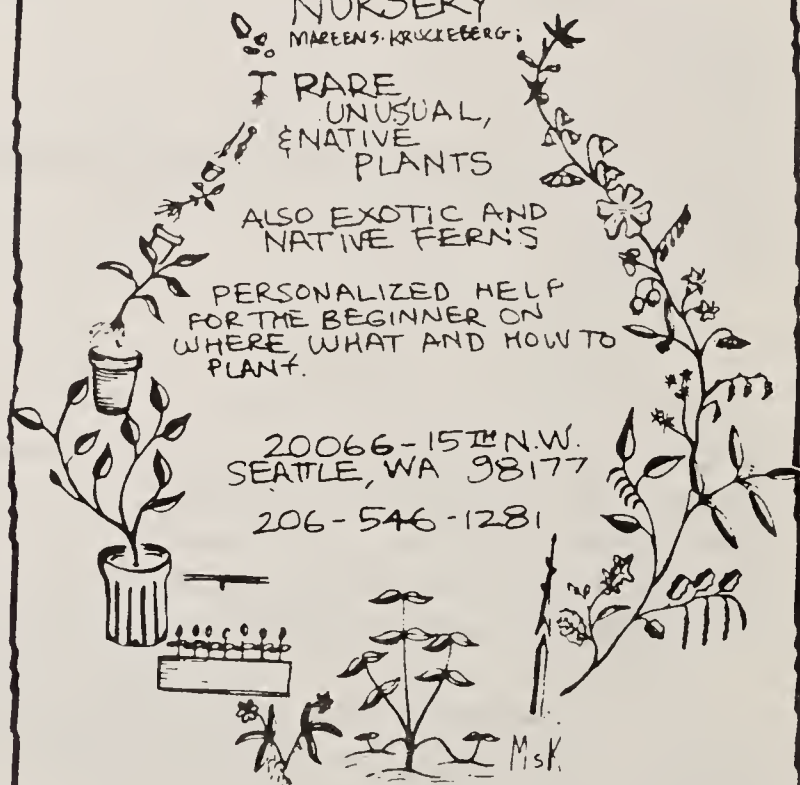 NURSERY
MAREEN S. KRUCKEBERG:
RARE,
UNUSUAL,
& NATIVE
PLANTS
ALSO EXOTIC AND
NATIVE FERNS
PERSONALIZED HELP
FOR THE BEGINNER ON
WHERE WHAT AND HOW TO
PLANt.
20066-15TH N.W.
SEATTLE, WA 98177
206-546-1281
MsK